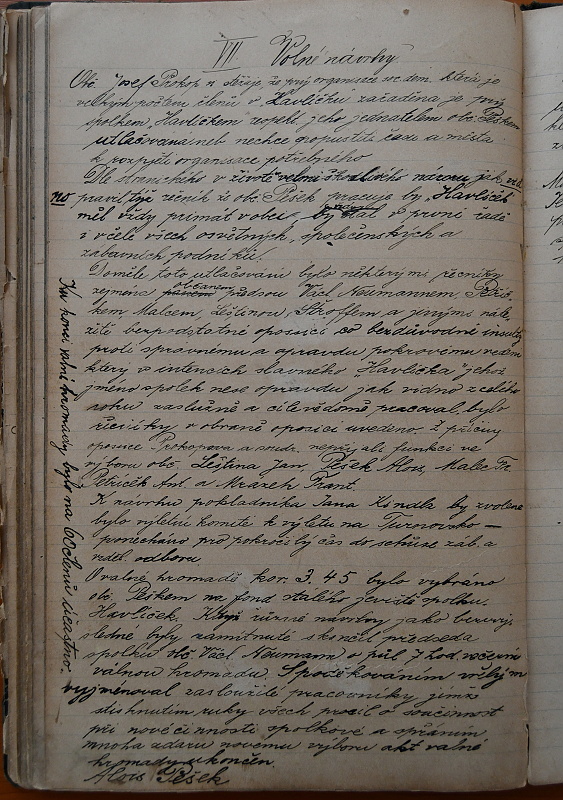 VII. Volné návrhy.
Obč. Josef Prokop si stěžuje, že prý organisace soc. dem. která je
velkým počtem členů v "Havlíčku" začaděna je prý
spolkem "Havlíčkem" respekt. jeho jednatelem obč. Peškem
utlačována neb nechce propustiti času a místa
k rozpětí organisace potřebného.
Dle stranického v životě velmi škodlivého názoru jak
pravil týž řečník že obč. Pešek pracuje by "Havlíček"
no
měl vždy primát vůbec, by stál v první řadě
i v čele všech osvětných, společenských a
zábavních podniků.
Domělé toto utlačování bylo některými řečníky
zejména občanem předsou Václ. Neumannem, Petříč
kem, Malcem, Leštinou, Štroffem a jinými nále
žitě bezpodstatné oposici co bezdůvodné insulty
proti správnému a opravdu pokrovému vedení
který v intencích slavného "Havlíčka" jehož
jméno spolek nese opravdu jak vidno z celého
roku záslužně a cílevědomě pracoval, bylo
řečníky v obraně oposici uvedeno. Z příčiny
oposice Prokopova a soudr. nepřijali funkci ve
výboru obč. Leština Jan, Pešek Alois, Malec Fr.
Petříček Ant. a Mrázek Frant.
K návrhu pokladníka Jana Kindla by zvoleno
bylo výletní komité k výletu na Turnovsko —
ponecháno pro pokročilý čas do schůze záb. a
vzděl. odboru
O valné hromadě kor. 3.45 bylo vybráno
obč. Peškem na fond stálého jeviště spolku
Havlíček. Když různé návrhy jako bezvý
sledné byly zamítnuté skončil předseda
spolku obč. Václ. Neumann o půl 7 hod. večerní
válnou hromadu. S poděkováním vřelým
vyjmenoval zasloužilé pracovníky jimž
stisknutím ruky všech prosil o součinnost
při nové činnosti spolkové a s přáním
mnoha zdaru novému výboru akt valné
hromady ukončen.
Alois Pešek
Ku konci valné hromady bylo na 60 členů účastno.